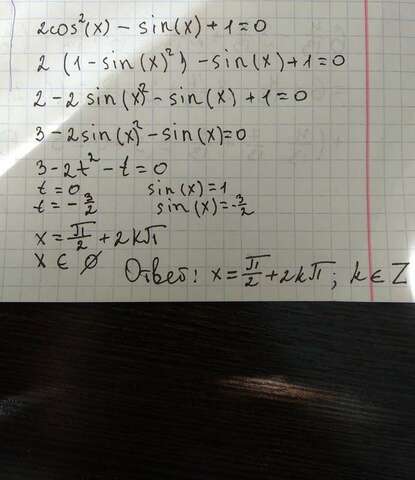 2cos²(x) - sin(x) + 1 = 0
2 (1 - sin(x)²) - sin(x) + 1 = 0
2 - 2 sin(x)² - sin(x) + 1 = 0
3 - 2sin(x)² - sin(x) = 0
3 - 2t² - t = 0
t = 0 sin(x) = 1
t = -3/2 sin(x) = -3/2
x = π/2 + 2kπ
x ∈ ∅
Ответ: x = π/2 + 2kπ; k ∈ Z